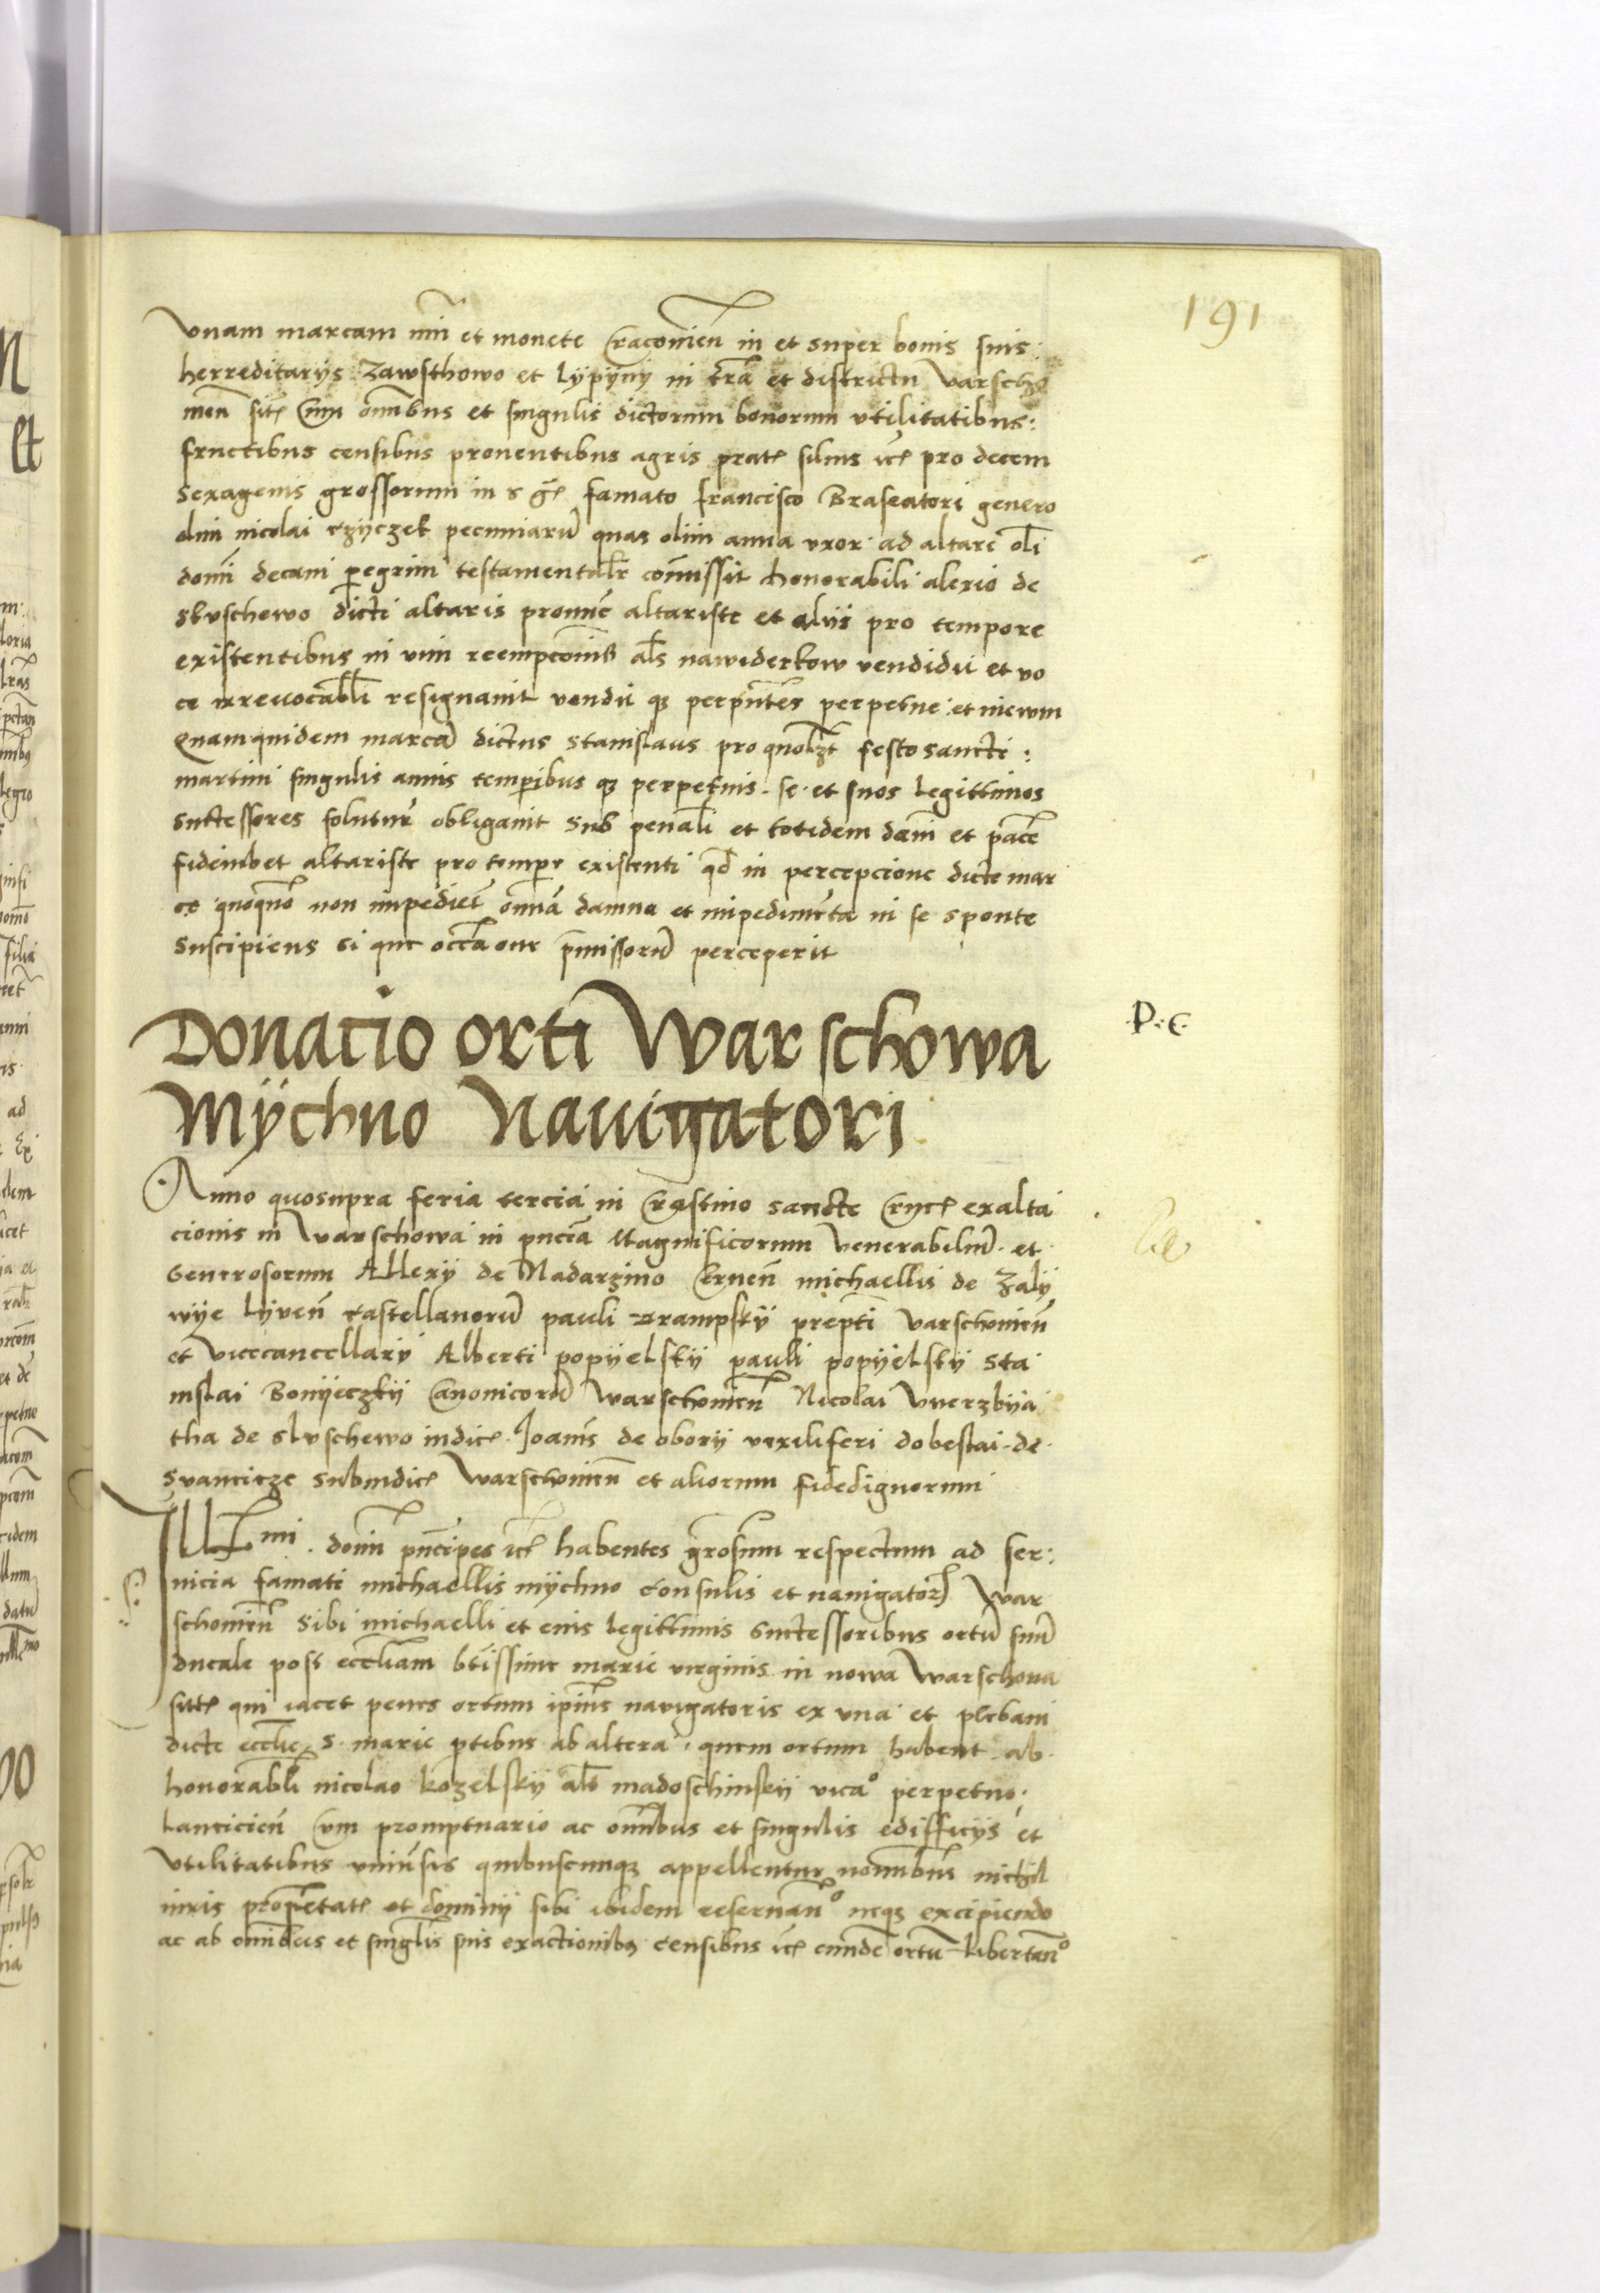 191
vnam marcam nūi et monete Cracovien̄ in et super bonis suis:
herreditarijs Zawsthowo et Lypỹnỹ in tr̄a et districtu Varscho
vien̄ sit̄ Cum om̄ibus et singulis dictorum bonorum vtilitatibus:
fructibus censibus proventibus agris prat̄ silvis ec̄ pro decem
sexagenis grossorum in s ḡ famato francisco Braseatori genero
olim nicolai czyczek pecuniarū quas olim anna vxor ad altare oli
domī decani peregrini testamentalr̄ com̄issit honorabili alexio de
Slvschewo dicti altaris pronūc altariste et alijs pro tempore
existentibus in vim reempcionis al̄s nawiderkow vendidit et vo
ce irrevocabl̄i resignavit vendit qȝ per pn̄tes perpetue et in ewm
Quamquidem marcā dictus stanislaus pro quol̄ȝt festo sancti:
martini singulis annis temporibus qȝ perpetuis se et suos legittimos
successores solutur̄ obligavit sub pena al̄i et totidem dam̄ et pace
fideiubet altariste pro tempore existenti qd̄ in percepcione dicte mar
ce quoquo non impediet om̄ia damna et impedimēta in se sponte
suscipiens si que occ̄aone p̄missorū perceperit
Donacio orti Warschowa
Mÿchno Navigatori
P. C.
Anno quosupra feria tercia in Crastino sancte Cruc̄ exalta
cionis in Varschowa in pn̄cia Magnificorum Venerabiliū et
Generosorum Allexij de Nadarzino Cernen̄ michaellis de Zalij
wije Lyven̄ castellanorū pauli Zrampskij prep̄ti Varschovien̄
et Vicecancellarij Alberti popijelskij pauli popijelskij Sta
nislai Bonijeczkij Canonicorū Warschovien̄ Nicolai Vverzbija
tha de Slvschewo iudic̄ Joan̄is de oborij vexiliferi dobeslai de
Svancicze Subiudic̄ Warschovien̄ et aliorum fidedignorum
Ill̄mi domī pn̄cipes ec̄ habentes grosum respectum ad ser:
vicia famati michaellis mÿchno consulis et navigator̄ War
schovien̄ Sibi michaelli et eius legittimis successoribus ortū suū
ducale post eccl̄iam bt̄issime marie virginis in nowa Warschova
sitt̄ qui iacet penes ortum ip̄ius navigatoris ex vna et plebani
dicte eccl̄ie S. marie ptibus ab altera, quem ortum habent ab
honorabl̄i nicolao kozelskij al̄s madoschinskij vicaº perpetuo
Lancicien̄ Cum promptuario ac om̄ibus et singulis edifficijs et
vtilitatibus vniv̄sis quibuscunqȝ appellentur nom̄ibus nichil
iuris proprietat̄ et dominij sibi ibidem reservanº neqȝ excipiendo
ac ab om̄ibus et singl̄is suis exactionibȝ censibus ec̄ eundē ortū libertanº